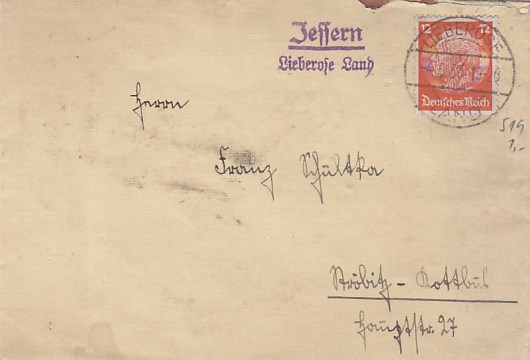 Jessern
Lieberose Land
12 12
Deutsches Reich
LIEBEROSE
519
1,-
Herrn
Franz Schultka
Ströbitz - Kottbus
Hauptstr. 27